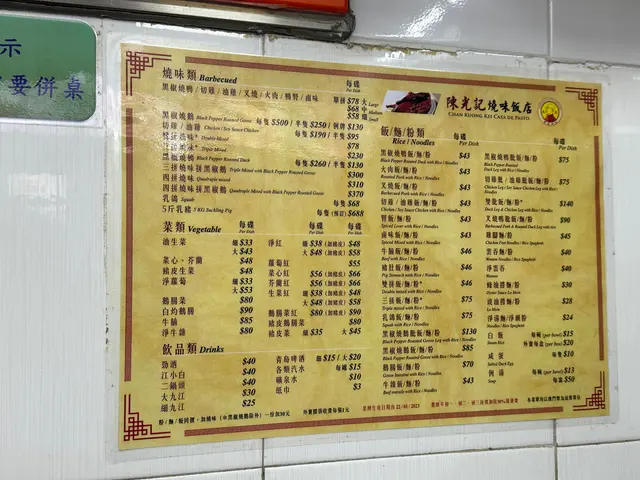 示
要併桌
燒味類 Barbecued
每碟
Per Dish
黑椒燒鴨/切雞/油雞/叉燒/火肉/鴨腎/鹵味 單拼 $78 大 Large
$68 中 Medium
$58 細 Small
黑椒燒鵝 Black Pepper Roasted Goose 每隻 $500 / 半隻 $250 / 例牌 $130
切雞/油雞 Chicken / Soy Sauce Chicken 每隻 $190 / 半隻 $95
雙拼燒味* Double Mixed $78
三拼燒味* Triple Mixed $78
黑椒燒鴨 Black Pepper Roasted Duck $230
每隻 $260 / 半隻 $130
三拼燒味拼黑椒鵝 Triple Mixed with Black Pepper Roasted Goose $300
四拼燒味 Quadruple Mixed $310
四拼燒味拼黑椒鵝 Quadruple Mixed with Black Pepper Roasted Goose $370
乳鴿 Squab 每隻 $68
5斤乳豬 5 KG Suckling Pig 每隻 (預訂) $688
菜類 Vegetable
每碟
Per Dish
油生菜 細 $33
大 $43
菜心、芥蘭 $48
豬皮生菜 $48
淨蘿蔔 細 $33
大 $53
鵝腸菜 $80
白灼鵝腸 $90
牛腩 $85
淨牛腩 $80
每碟
Per Dish
每碟
Per Dish
淨紅 細 $38 (加豬皮) $48
大 $48 (加豬皮) $58
蘿蔔紅 $55
菜心紅 $56 (加豬皮) $66
芥蘭紅 $56 (加豬皮) $66
生菜紅 細 $38 (加豬皮) $48
大 $48 (加豬皮) $58
鵝腸菜紅 $80 (加豬皮) $90
豬皮鵝腸菜 $80
豬皮菜 細 $35 大 $45
飲品類 Drinks
勁酒 $40
江小白 $40
二鍋頭 $40
大九江 $30
細九江 $25
青島啤酒 細 $15 / 大 $20
各類汽水 每罐 $15
礦泉水 $10
紙巾 $3
粉/麵/飯同價,加燒味(※黑椒燒鵝除外)一份加30元
外賣膠袋收費每個1元
陳光記燒味飯店
CHAN KUONG KEI CASA DE PASTO
飯/麵/粉類
Rice / Noodles
每碟
Per Dish
黑椒燒鴨飯/麵/粉 $43
Black Pepper Roasted Duck with Rice / Noodles
火肉飯/麵/粉 $43
Roasted Pork with Rice / Noodles
叉燒飯/麵/粉 $43
Barbecued Pork with Rice / Noodles
切雞/油雞飯/麵/粉 $43
Chicken / Soy Sauce Chicken with Rice / Noodles
腎飯/麵/粉 $43
Spiced Liver with Rice / Noodles
鹵味飯/麵/粉 $43
Spiced Mixed with Rice / Noodles
牛腩飯/麵/粉 $46
Beef with Rice / Noodles
豬肚飯/麵/粉 $46
Pig Stomach with Rice / Noodles
雙拼飯/麵/粉* $46
Double mixed with Rice / Noodles
三拼飯/麵/粉* $75
Triple mixed with Rice / Noodles
乳鴿飯/麵/粉 $75
Squab with Rice / Noodles
黑椒燒鵝髀飯/麵/粉 $130
Black Pepper Roasted Goose Leg with Rice / Noodles
黑椒燒鵝飯/麵/粉 $85
Black Pepper Roasted Goose with Rice / Noodles
鵝腸飯/麵/粉 $70
Goose Intestine with Rice / Noodles
牛雜飯/麵/粉 $43
Beef entrails with Rice / Noodles
每碟
Per Dish
黑椒燒鴨髀飯/麵/粉 $75
Black Pepper Roasted Duck Leg with Rice / Noodles
切雞髀/油雞髀飯/麵/粉 $75
Chicken Leg / Soy Sauce Chicken Leg with Rice / Noodles
雙髀飯/麵/粉* $140
Duck Leg & Chicken Leg with Rice / Noodles
叉燒鴨髀飯/麵/粉 $90
Barbecued Pork & Roasted Duck Leg with Rice
雞腳麵/粉 $45
Chicken Feet Rice / Noodles
雲吞麵/粉 $40
Wonton Noodles / Rice Spaghetti
淨雲吞 $40
Wonton
蠔油撈麵 $30
Oyster Sauce Lo Mein
豉油撈麵 $28
Lo Mein
淨湯麵/淨湯粉 $24
Noodles / Rice Spaghetti
白飯 每碗 (per bowl) $15
Steam Rice 外賣每盒 (per box) $20
咸蛋 每隻 $10
Salted Duck Egg
例湯 每碗 (per bowl) $13
Soup 每盒 $50